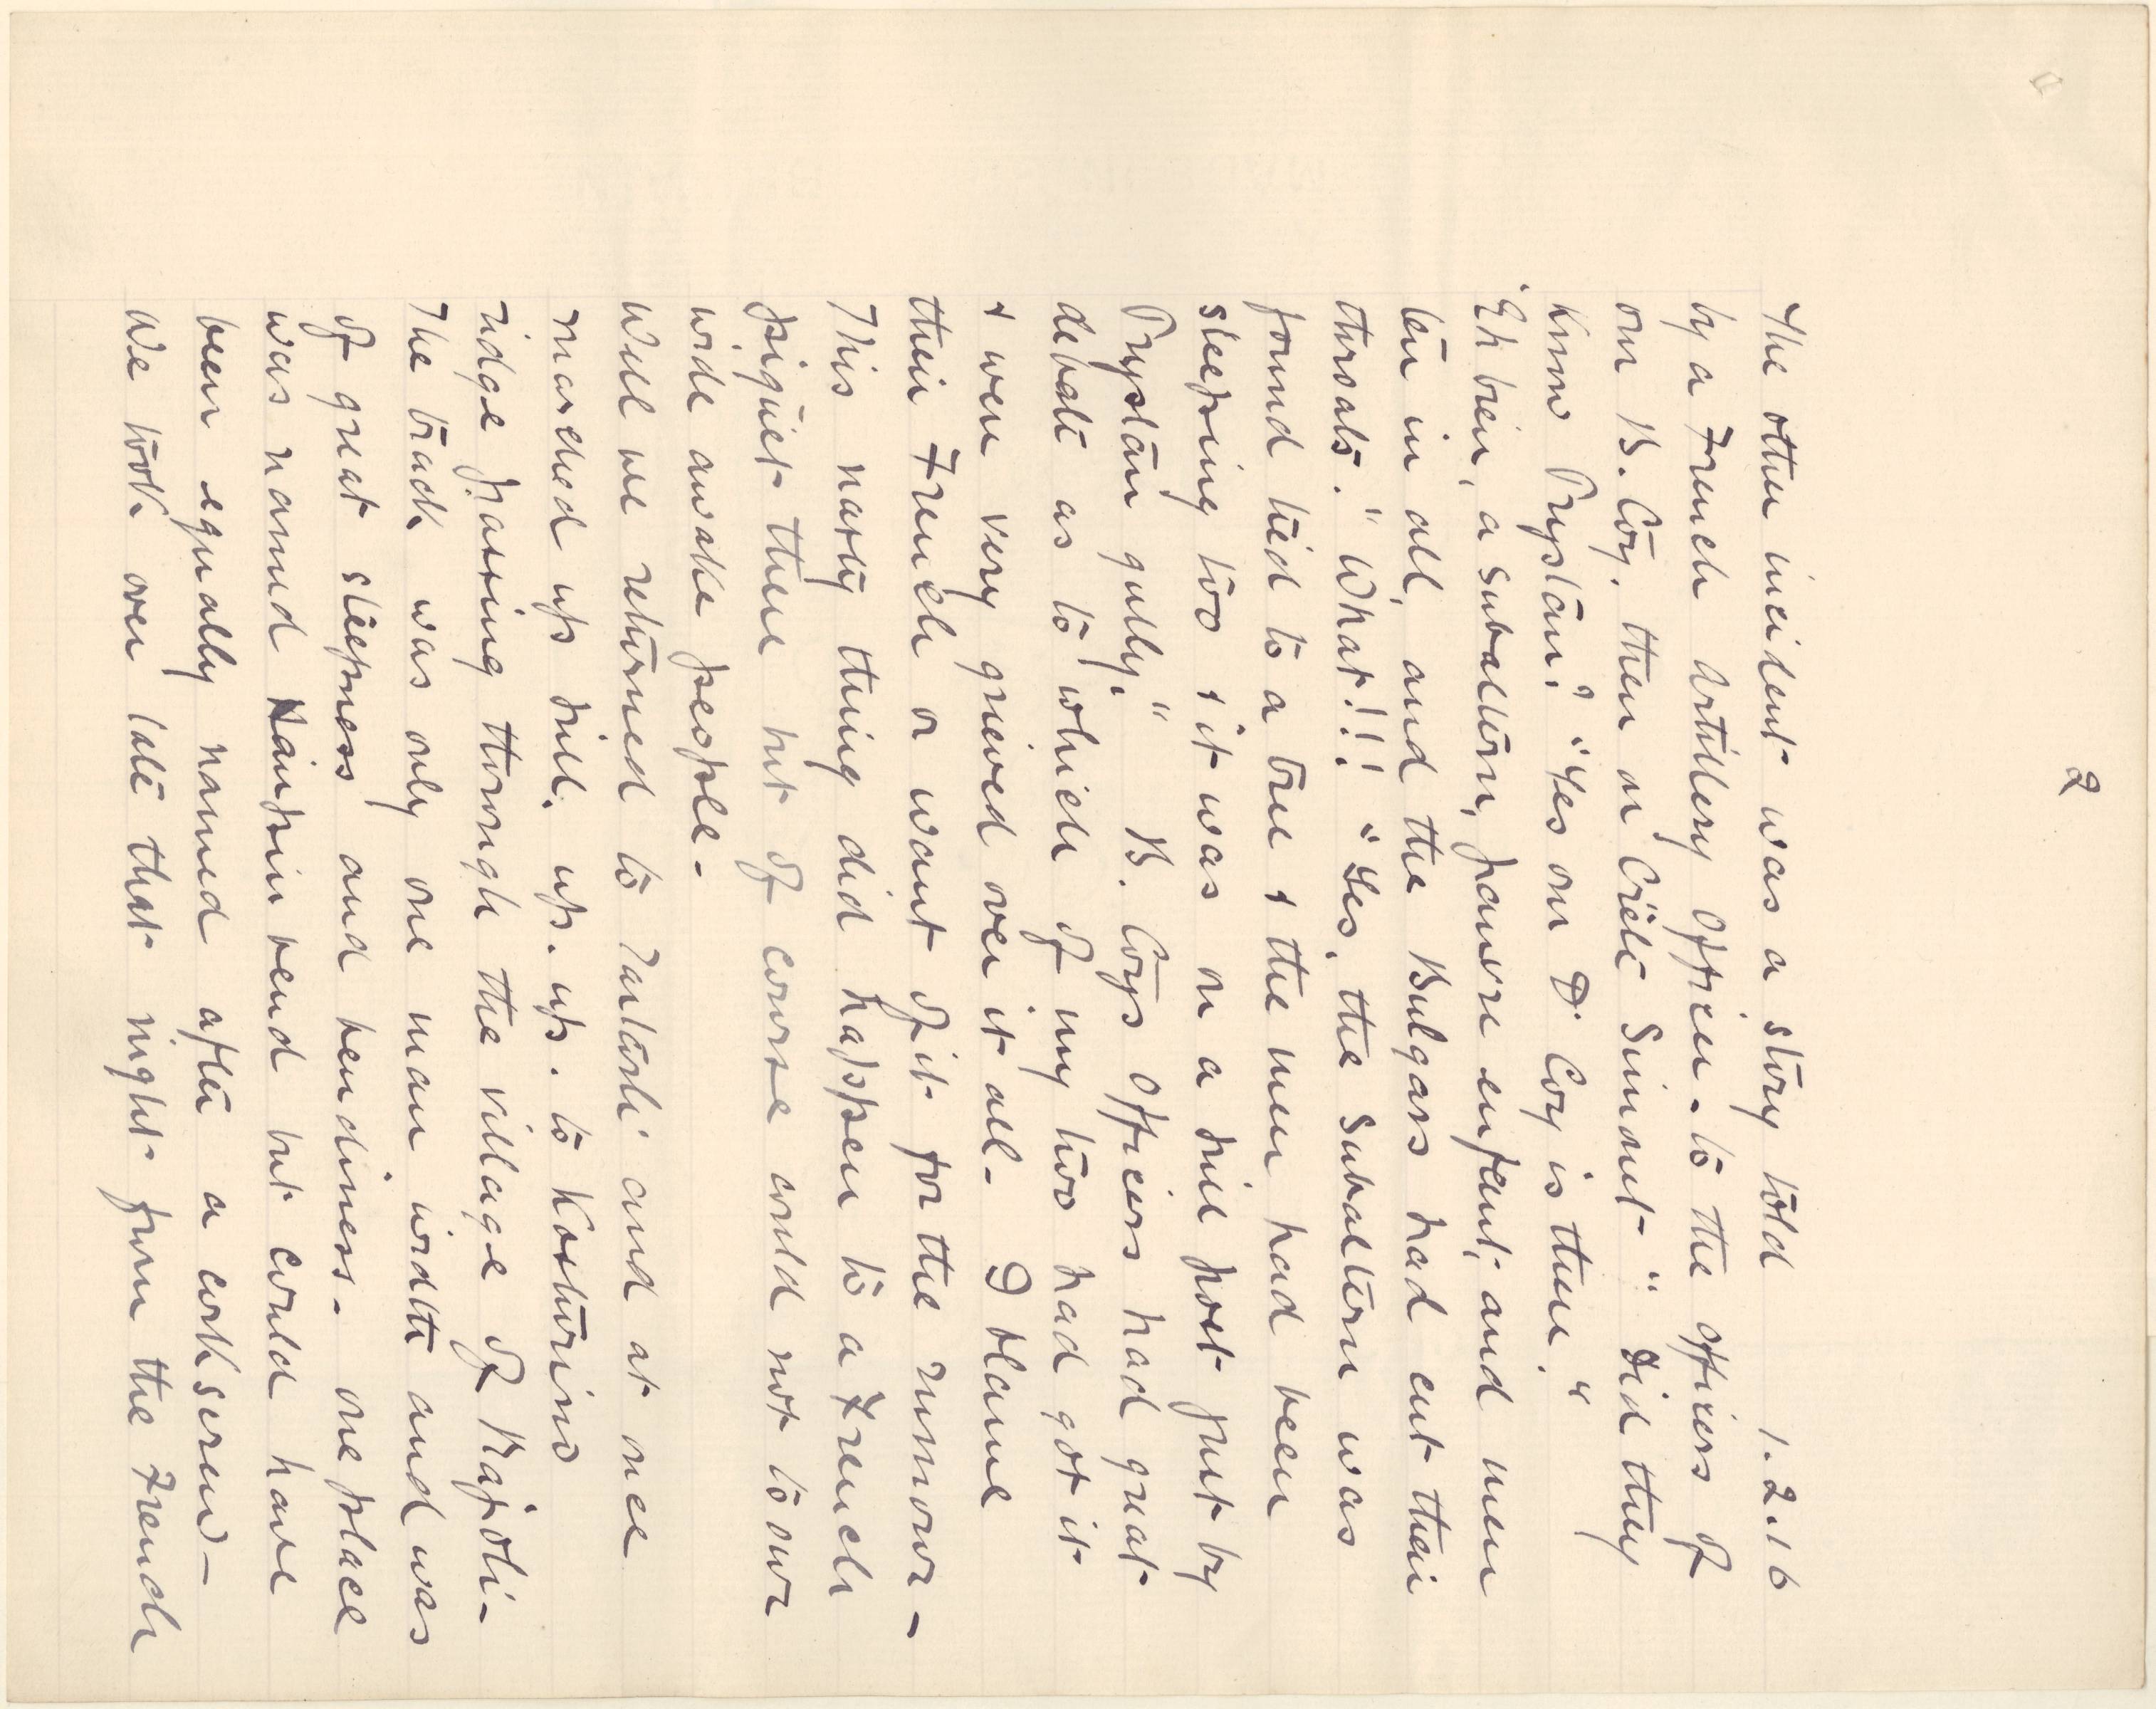 2
The other incident was a story told 1.2.16
by a French Artillery Officer - to the officers of
our B. Coy. then on Crête Simont " Did they
know Prystan? "Yes our D. Coy is there."
"Eh bien, a subaltern, pauvre enfant, and men
ten in all, and the Bulgars had cut their
throats." What!!! "Yes, the Subaltern was
found tied to a tree & the men had been
sleeping too & it was on a hill post just by
Prystan gully." B. Coys Officers had great
debate as to which of my two had got it
& were very grieved over it all - I blame
their French or want of it for the rumour -
This nasty thing did happen to a French
piquet there but of course could not to our
wide awake people -
Well we returned to Tartarli and at once
marched up hill, up. up. to Kosturino
ridge passing through the village of Kajoli -
The track was only one man width and was
of great steepness and bendiness - one place
was named Hairpin bend but could have
been equally named after a cork screw -
We took over late that night from the French